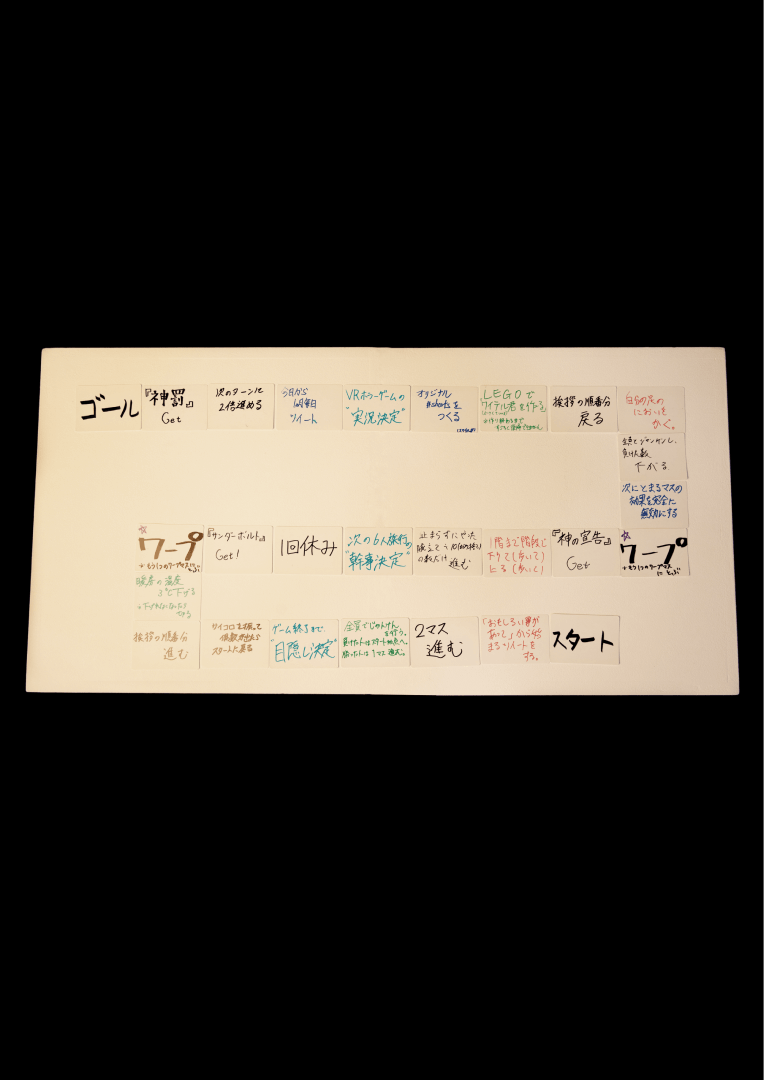 ゴール
『神罰』
Get
次のターンは
2倍進める
今日から
1週間毎日
ツイート
VRホラーゲームの
"実況決定"
オリジナル
#shortsを
つくる
LEGOで
ワイテル君を作る
挨拶の順番分
戻る
自分の足の
においを
かぐ。
全員でジャンケンし、
負け人数
下がる
次にとまるマスの
効果を完全に
無効にする
☆
ワープ
+もう1つのワープマスにとぶ
『サンダーボルト』
Get!
1回休み
次の6人旅行の
"幹事決定"
止まらずにやった
腕立て
の数だけ
進む
1階まで階段で
下りて(歩いて)
上る(歩いて)
『神の宣告』
Get
☆
ワープ
+もう1つのワープマス
にとぶ
暖房の温度
3℃下げる
挨拶の順番分
進む
サイコロを振って
偶数が出たら
スタートに戻る
ゲーム終了まで
"目隠し決定"
全員でじゃんけん
を行う。
負けた人はスタート地点へ。
勝った人は1マス進む。
2マス
進む
「おもしろい事が
あって」から始
まるツイートを
する。
スタート